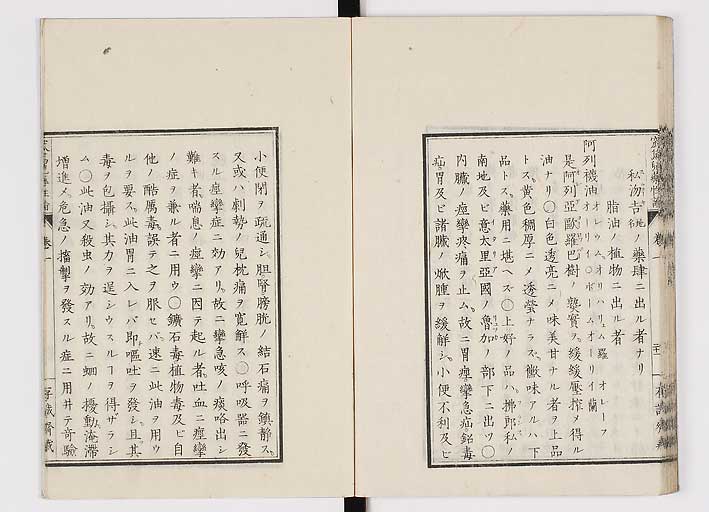 私泐吉地名ノ藥肆ニ出ル者ナリ
脂油ノ植物ニ出ル者
阿列襪油オレウム、オリハリュム羅 オレーフオーリイ○ボームオーリイ蘭
是阿列亞歐羅巴樹ノ熟實ヲ緩緩壓搾メ得ル
油ナリ○白色透亮ニメ味美甘ナル者ヲ上品
トス黄色稠厚ニメ透瑩ナラス、鹹味アルハ下
品トス、藥用ニ堪ヘズ○上好ノ品ハ拂郎私ノ
南地及ビ意太里亞國ノ魯加ノ部下ニ出ツ○
内臓ノ痙攣疼痛ヲ止ム。故ニ胃痙攣急疝、鉛毒
疝胃及ビ諸臓ノ焮腫ヲ緩解シ。小便不利及ビ
小便閉ヲ疏通シ。胆腎膀胱ノ結石痛ヲ鎮静ス。
又或ハ劇勢ノ兒枕痛ヲ寛解ス○呼吸器ニ發
スル痙攣症ニ効アリ。故ニ攣急咳ノ痰咯出シ
難キ者。喘息ノ痙攣ニ因テ起ル者。吐血ニ痙攣
ノ症ヲ兼ル者ニ用ウ○鑛石毒植物毒及ビ自
他ノ酷厲毒。誤テ之ヲ服セバ。速ニ此油ヲ用ウ
ルヲ要ス。此油胃ニ入レバ即嘔吐ヲ發シ。且其
毒ヲ包攝シ其力ヲ逞シウスルヿヲ得ザラシ
ム○此油又殺虫ノ効アリ。故ニ蛔ノ擾動淹滯
増進メ危急ノ搐掣ヲ發スル症ニ用井テ奇驗